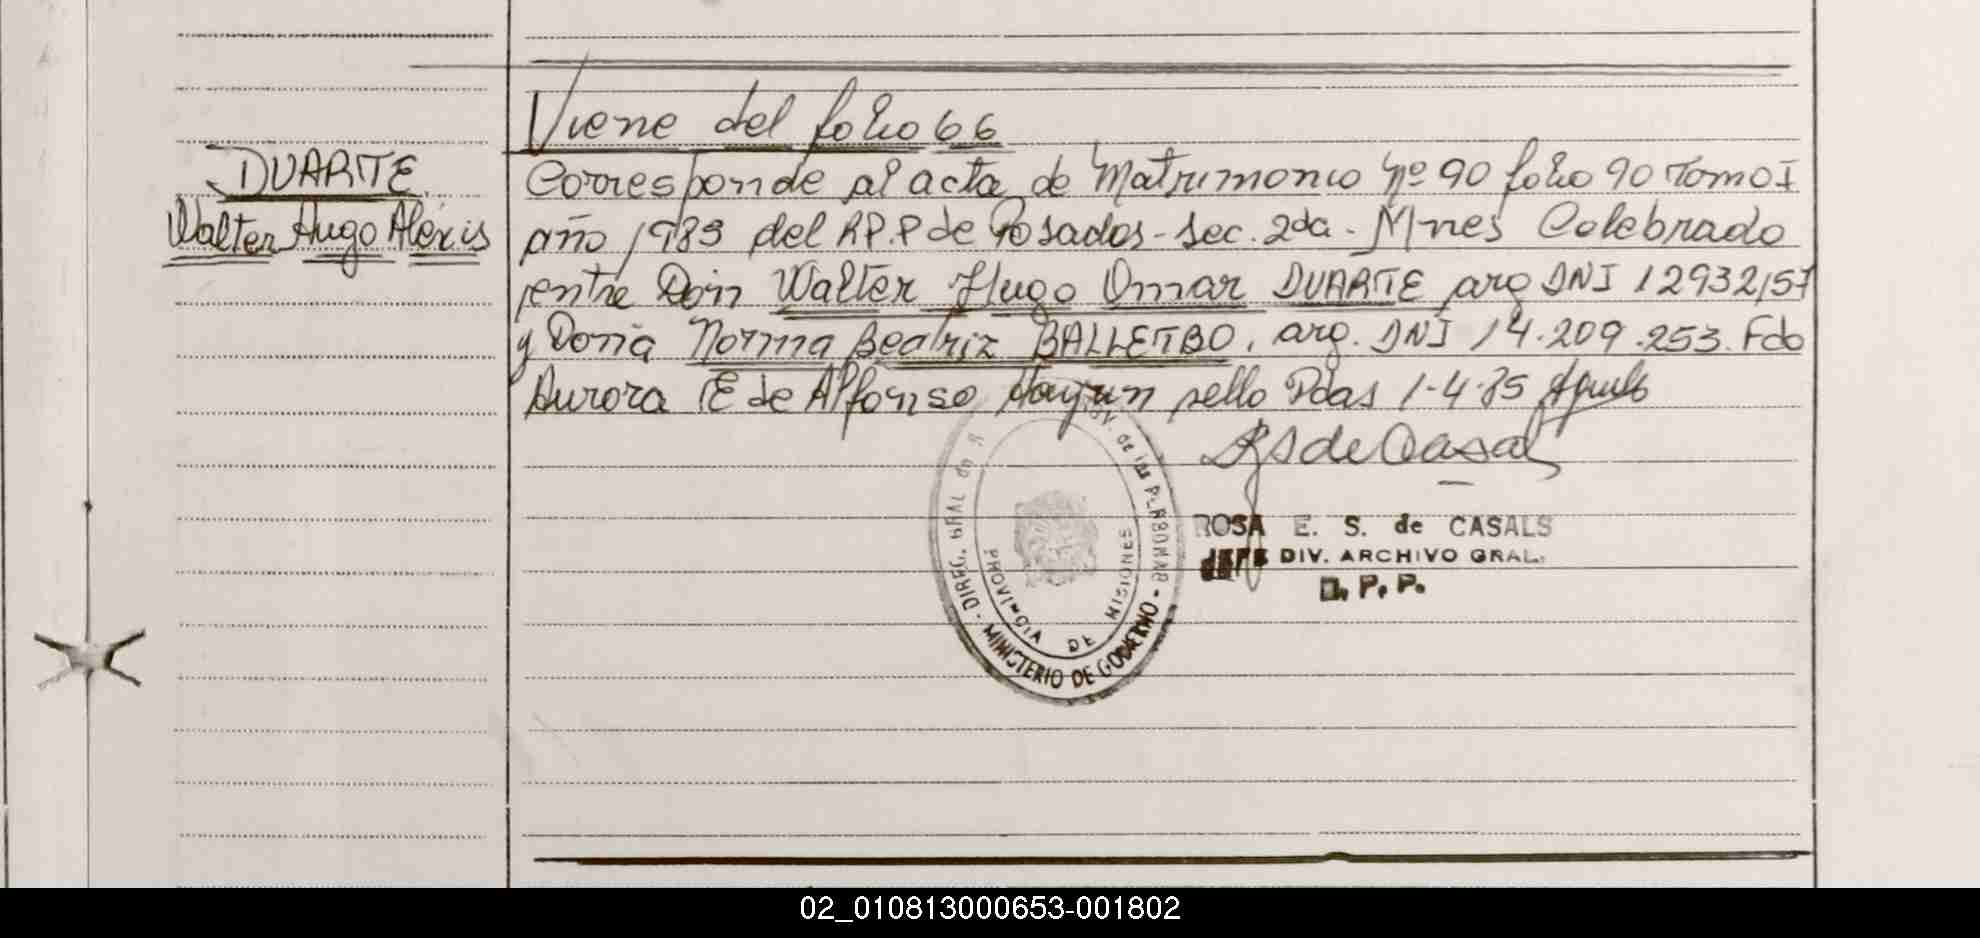 Viene del folio 66
DUARTE
Walter Hugo Aléxis
Corresponde al acta de Matrimonio Nº 90 folio 90 Tomo I
año 1983 del RP.P de Posadas - Sec. 2da - Mnes Celebrado
entre Don Walter Hugo Omar DUARTE arg DNI 12932157
y Doña Norma Beatriz BALLETBO, arg. DNI 14.209.253. Fdo
Aurora E de Alfonso sello Pdas 1-4-85
RS de Casals
DIREC. GRAL de de las PERSONAS - MINISTERIO DE GOBIERNO -
PROVINCIA DE MISIONES
ROSA E. S. de CASALS
JEFE DIV. ARCHIVO GRAL.
D. P. P.
02_010813000653-001802